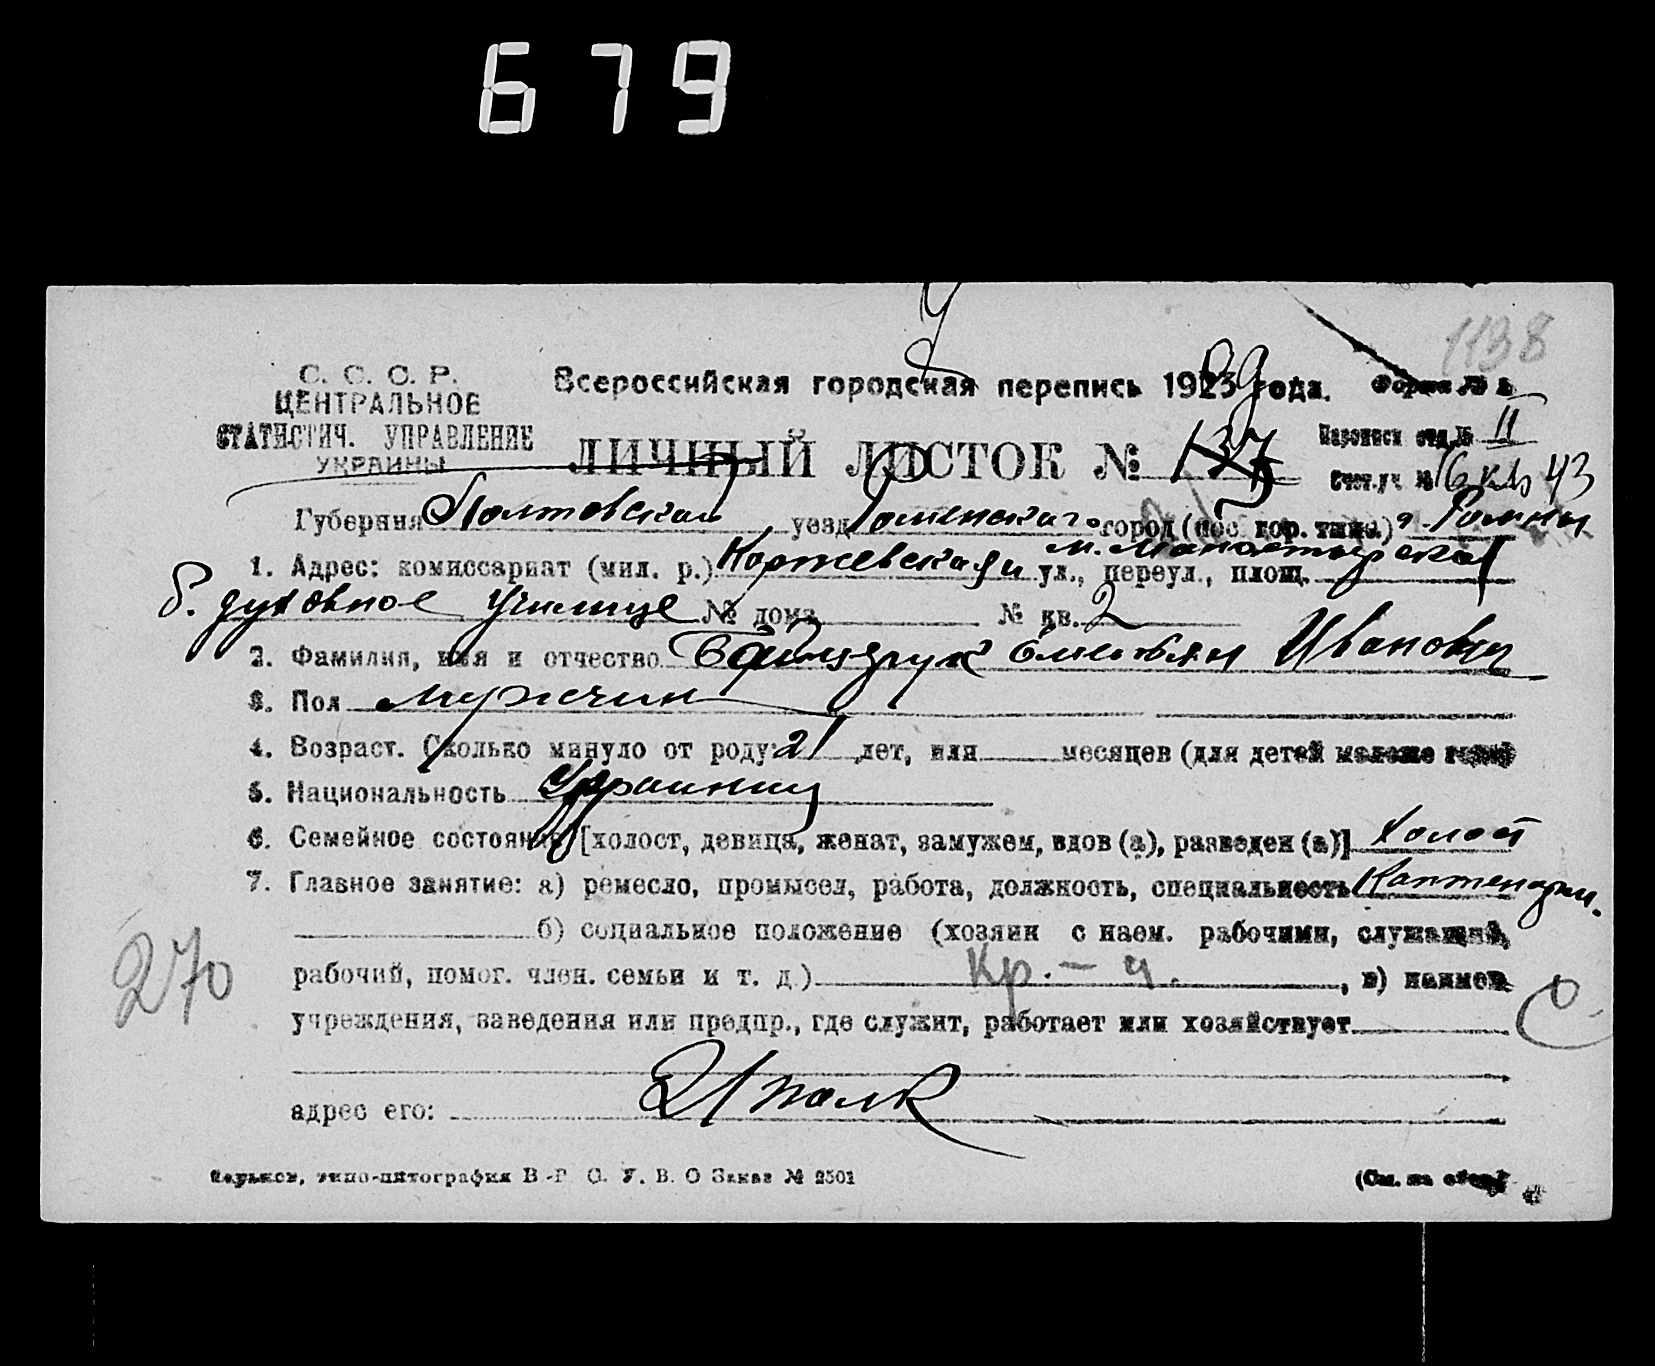 679
1138
С. С. С. Р.
ЦЕНТРАЛЬНОЕ
СТАТИСТИЧ. УПРАВЛЕНИЕ
УКРАИНЫ
Всероссийская городская перепись 1923 года.
ЛИЧНЫЙ ЛИСТОК №
Переписн отд. № II
Счет.уч № 16 кв 43
Губерния Полтовская уезд Роменская город (пос. гор. типа) г. Ромны
1. Адрес: комиссариат (мил. р.) Коржевская и ул., переул., площ. м. Манастырская
б. духовное училище № дома № кв. 2
2. Фамилия, имя и отчество Емельян Иванович
3. Пол мужчин
4. Возраст. Сколько минуло от роду 21 лет, или месяцев (для детей моложе года)
5. Национальность Украинец
6. Семейное состояние [холост, девица, женат, замужем, вдов (а), разведен (а)] холост
7. Главное занятие: а) ремесло, промысел, работа, должность, специальность Каптенарм.
б) социальное положение (хозяин с наем. рабочими, служащий,
270
рабочий, помог. член. семьи и т. д.) Кр. – ч. , в) наимен.
учреждения, заведения или предпр., где служит, работает или хозяйствует
21 полк
адрес его:
Харьков, типо-литография В.-Р. С. У. В. О Заказ № 2501
(См. на обор.)